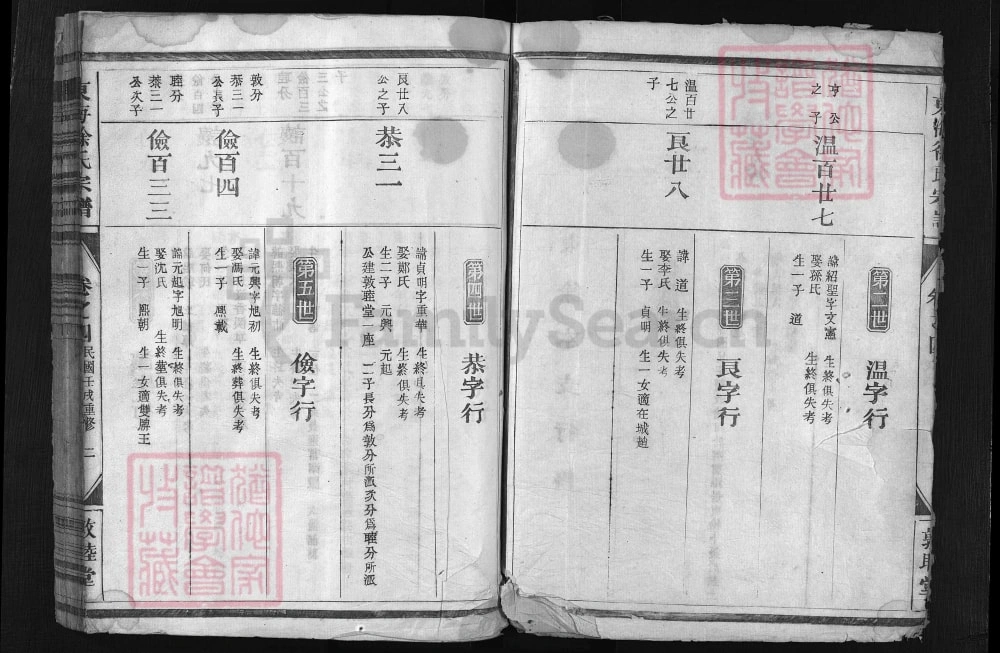 第二世
溫字行
亨公之子
溫百廿七
諱紹聖字文憲 生終俱失考
娶孫氏 生終俱失考
生一子 道
第三世
良字行
溫百廿七公之子
良廿八
諱道 生終俱失考
娶李氏 生終俱失考
生一子 貞明 生一女適在城趙
第四世
恭字行
良廿八公之子
恭三一
諱貞明字重華 生終俱失考
娶鄭氏 生終俱失考
生二子 元興 元起
公建敦睦堂一座 二子長分爲敦分所派次分爲睦分所派
第五世
儉字行
敦分
恭三一公長子
儉百四
諱元興字旭初 生終俱失考
娶馮氏 生終葬俱失考
生一子 熙載
睦分
恭三一公次子
儉百三三
諱元起字旭明 生終俱失考
娶沈氏 生終墓俱失考
生一子 熙朝 生一女適雙牌王
東海徐氏宗譜
卷之四
民國壬戌重修
二
敦睦堂
猶他家譜學會特藏
猶他家譜學會特藏
FamilySearch